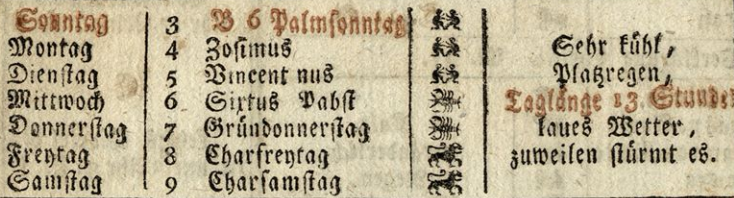 Sonntag 3 B 6 Palmsonntag
Montag 4 Zosimus Sehr kühl,
Dienstag 5 Vincent nus Platzregen,
Mittwoch 6 Sixtus Pabst Taglänge 13. Stunde
Donnerstag 7 Gründonnerstag laues Wetter,
Freytag 8 Charfreytag zuweilen stürmt es.
Samstag 9 Charsamstag